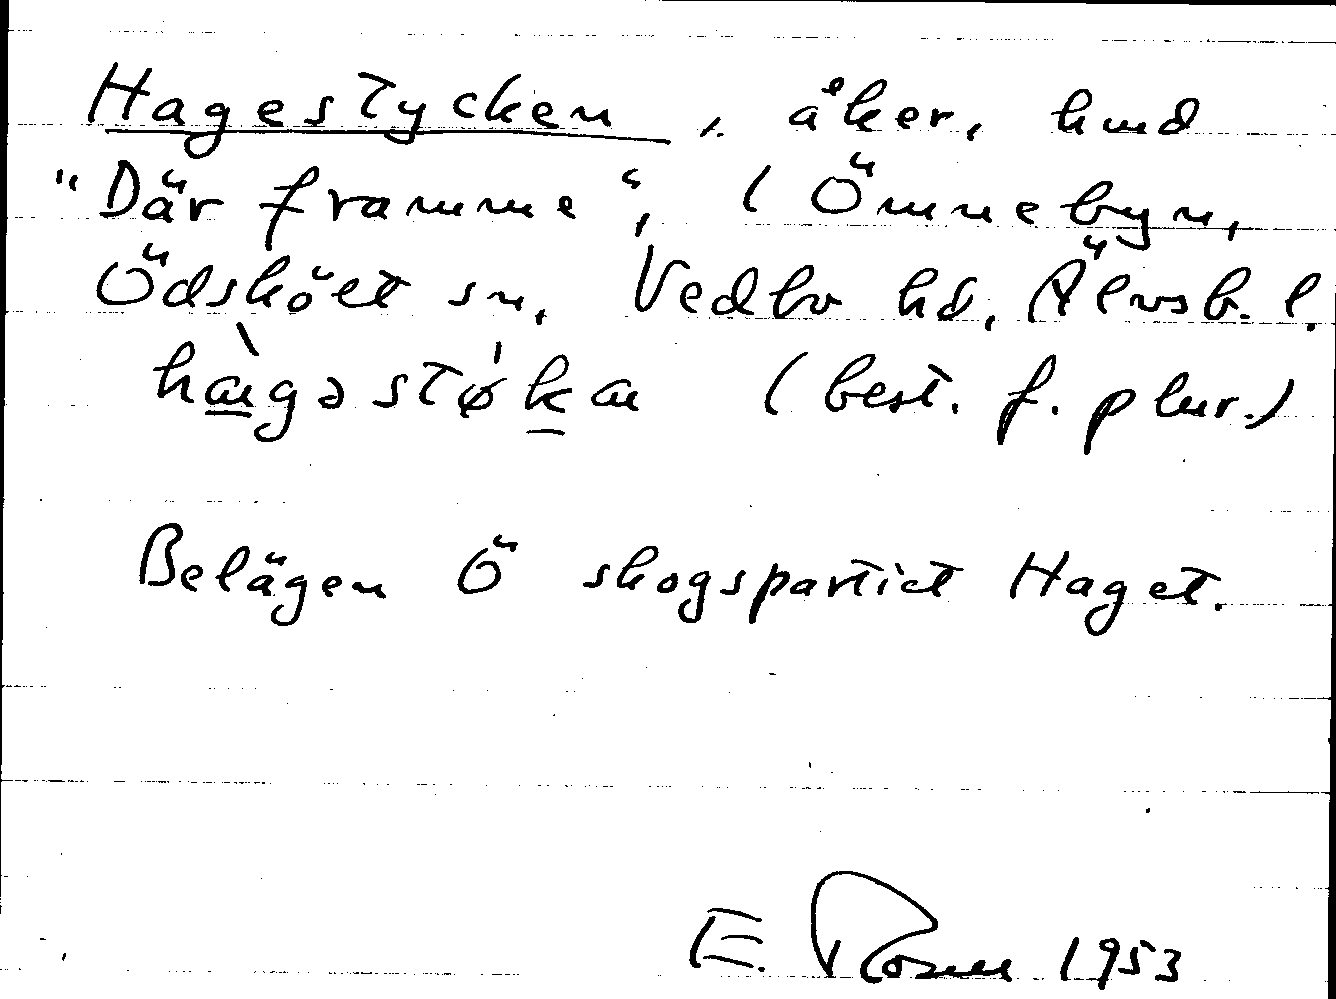 Hagestycken, åker, hmd
"Där framme", (Ömnebyn,
Ödskölt sn, Vedbo hd, Älvsb. l.
hàgəstø'ka (best. f. plur.)
Belägen Ö skogspartiet Haget.
E. Rosell 1953